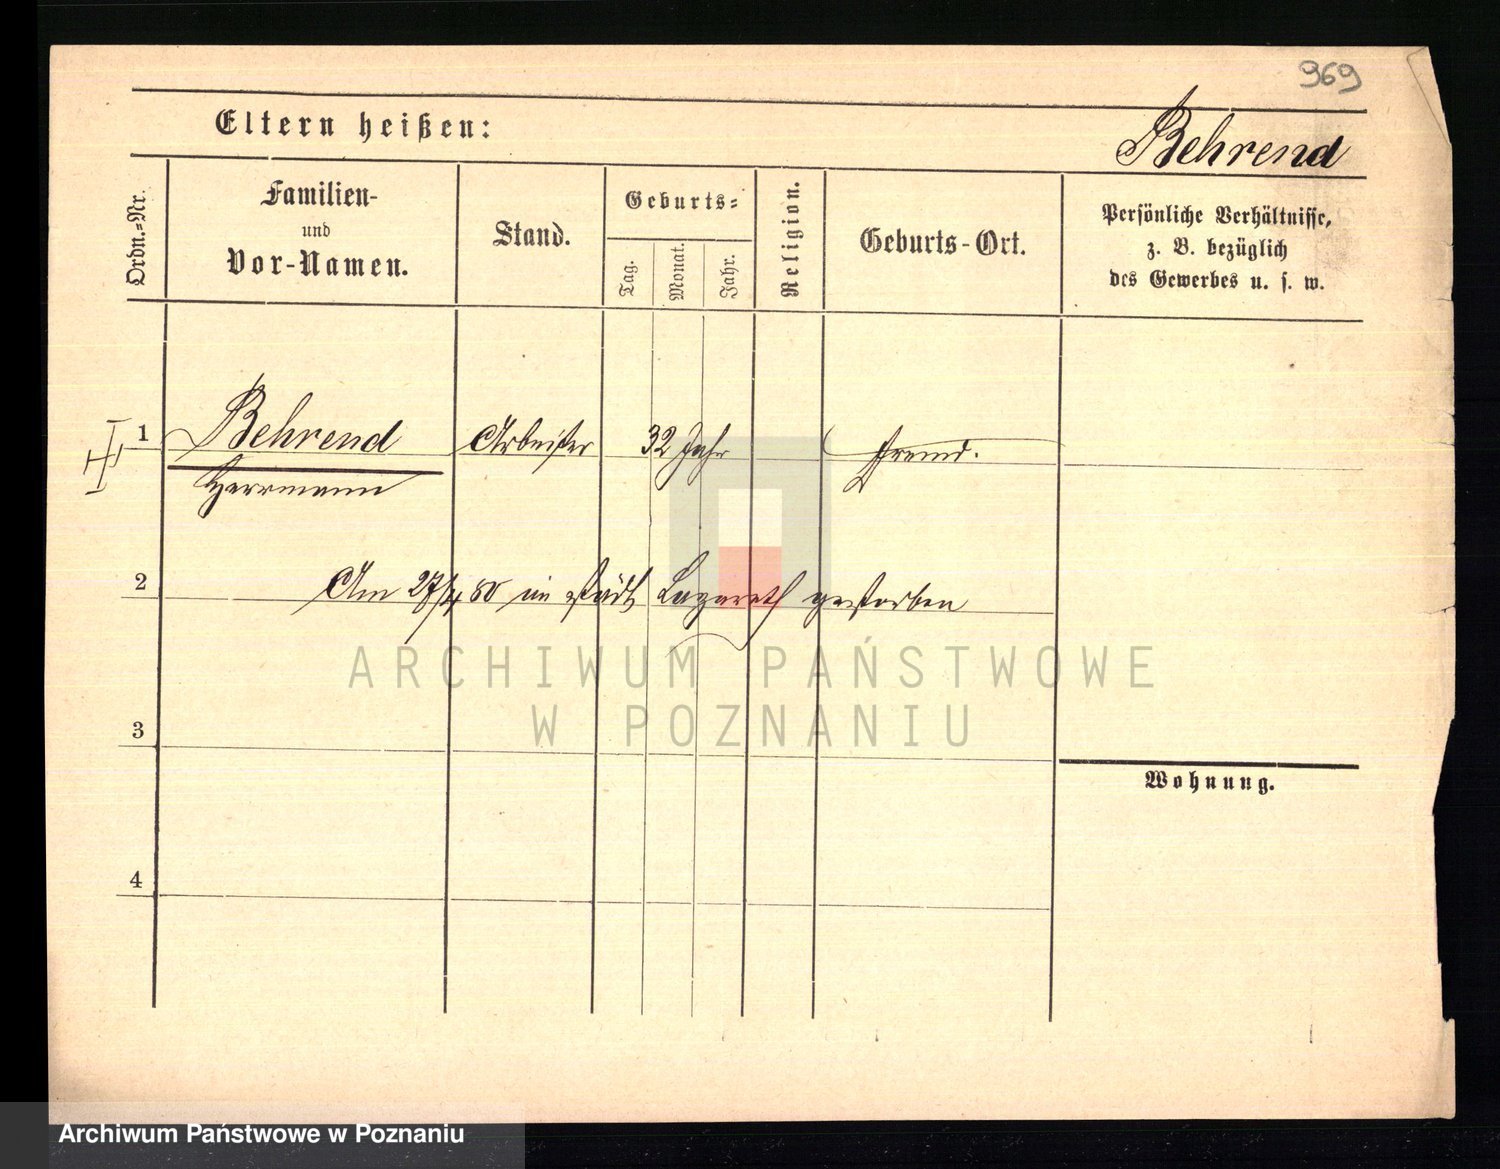 969
Eltern heißen:
Behrend
Ordn.=Nr.
Familien-
und
Vor-Namen.
Stand.
Geburts=
Tag.
Monat.
Jahr.
Religion.
Geburts-Ort.
Persönliche Verhältnisse,
z. B. bezüglich
des Gewerbes u. s. w.
1 Behrend Arbeiter 32 Jahr fremd.
Herrmann
2
Am 27/4 80 im städt Lazareth gestorben
ARCHIWUM PAŃSTWOWE
W POZNANIU
3
Wohnung.
4
Archiwum Państwowe w Poznaniu